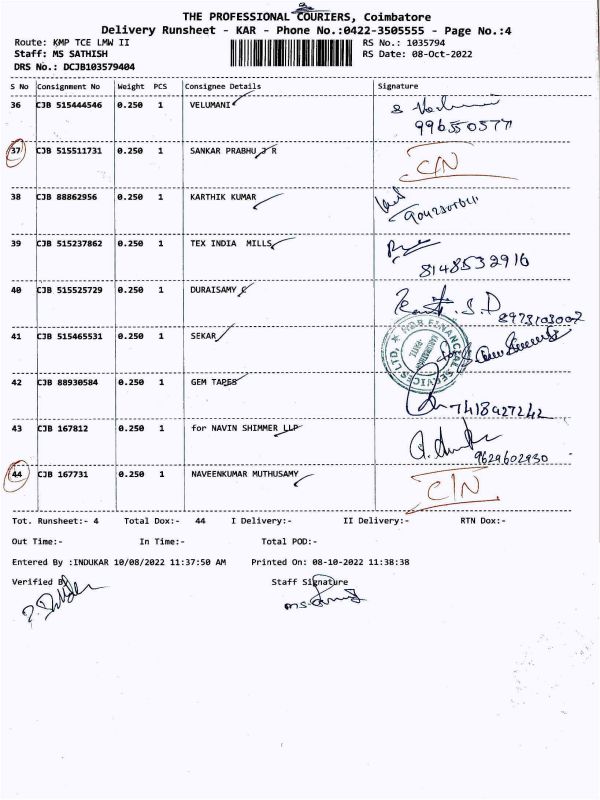 THE PROFESSIONAL COURIERS, Coimbatore
Delivery Runsheet - KAR - Phone No.:0422-3505555 - Page No.:4
Route: KMP TCE LMW II RS No.: 1035794
Staff: MS SATHISH RS Date: 08-Oct-2022
DRS No.: DCJB103579404
S No Consignment No Weight PCS Consignee Details Signature
36 CJB 515444546 0.250 1 VELUMANI
37 CJB 515511731 0.250 1 SANKAR PRABHU J R C/N
38 CJB 88862956 0.250 1 KARTHIK KUMAR
39 CJB 515237862 0.250 1 TEX INDIA MILLS
8148532916
40 CJB 515525729 0.250 1 DURAISAMY C
8973103007
41 CJB 515465531 0.250 1 SEKAR
42 CJB 88930584 0.250 1 GEM TAPES
7418427242
43 CJB 167812 0.250 1 for NAVIN SHIMMER LLP
9629602930
44 CJB 167731 0.250 1 NAVEENKUMAR MUTHUSAMY C/N
Tot. Runsheet:- 4 Total Dox:- 44 I Delivery:- II Delivery:- RTN Dox:-
Out Time:- In Time:- Total POD:-
Entered By :INDUKAR 10/08/2022 11:37:50 AM Printed On: 08-10-2022 11:38:38
Verified By Staff Signature